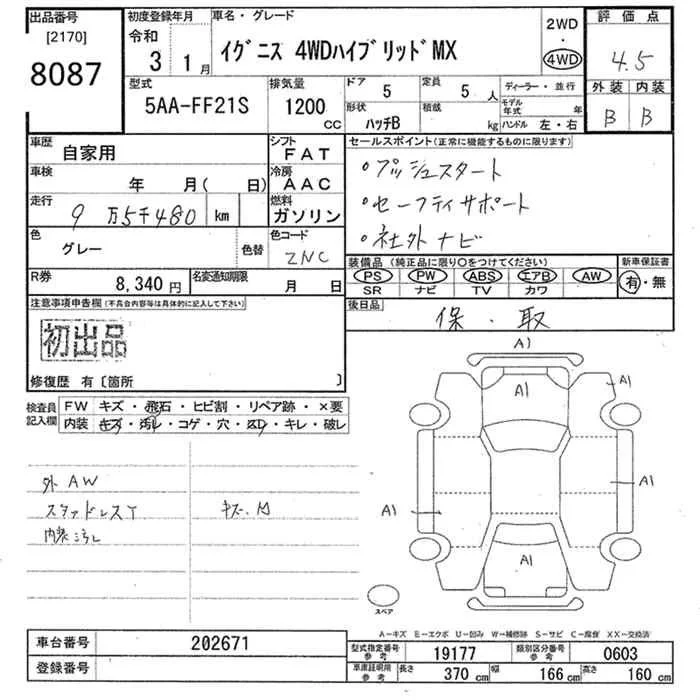 出品番号
[2170]
8087
初度登録年月
令和
3 1月
車名・グレード
イグニス 4WDハイブリッドMX
2WD
・
4WD
評価点
4.5
外装 内装
B B
型式
5AA-FF21S
排気量
1200 CC
ドア 5
定員 5 人
形状 ハッチB
積載 kg
ディーラー・並行
モデル年式 年
ハンドル 左・右
車歴
自家用
シフト
FAT
車検
年 月( 日)
冷房
AAC
走行
9万5千480 km
燃料
ガソリン
色
グレー
色替
色コード
ZNC
R券
8,340円
名変通知期限
月 日
セールスポイント(正常に機能するものに限ります)
・プッシュスタート
・セーフティサポート
・社外ナビ
装備品(純正品に限り○をつけてください)
PS PW ABS エアB AW
SR ナビ TV カワ
新車保証書
有・無
後日品
保・取
注意事項申告欄(不具合内容等は具体的に記入して下さい)
初出品
修復歴 有〔箇所 〕
検査員記入欄
FW キズ・飛石・ヒビ割・リペア跡・×要
内装 キズ・汚レ・コゲ・穴・スレ・キレ・破レ
外AW
スタッドレスT
内装こうし
キズ・凹
A1
A1
A1
A1
A1
A1
スペア
A-キズ E-エクボ U-凹み W-補修跡 S-サビ C-腐食 XX-交換済
車台番号 202671
登録番号
型式指定番号 参考 19177
類別区分番号 参考 0603
車庫証明用 参考 長さ 370 cm 幅 166 cm 高さ 160 cm